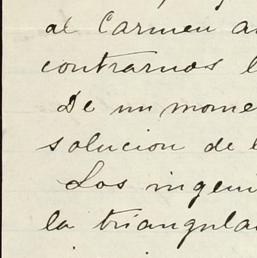 al Carmen a
contrarnos l
De un mome
solucion de l
Los ingeni
la triangula